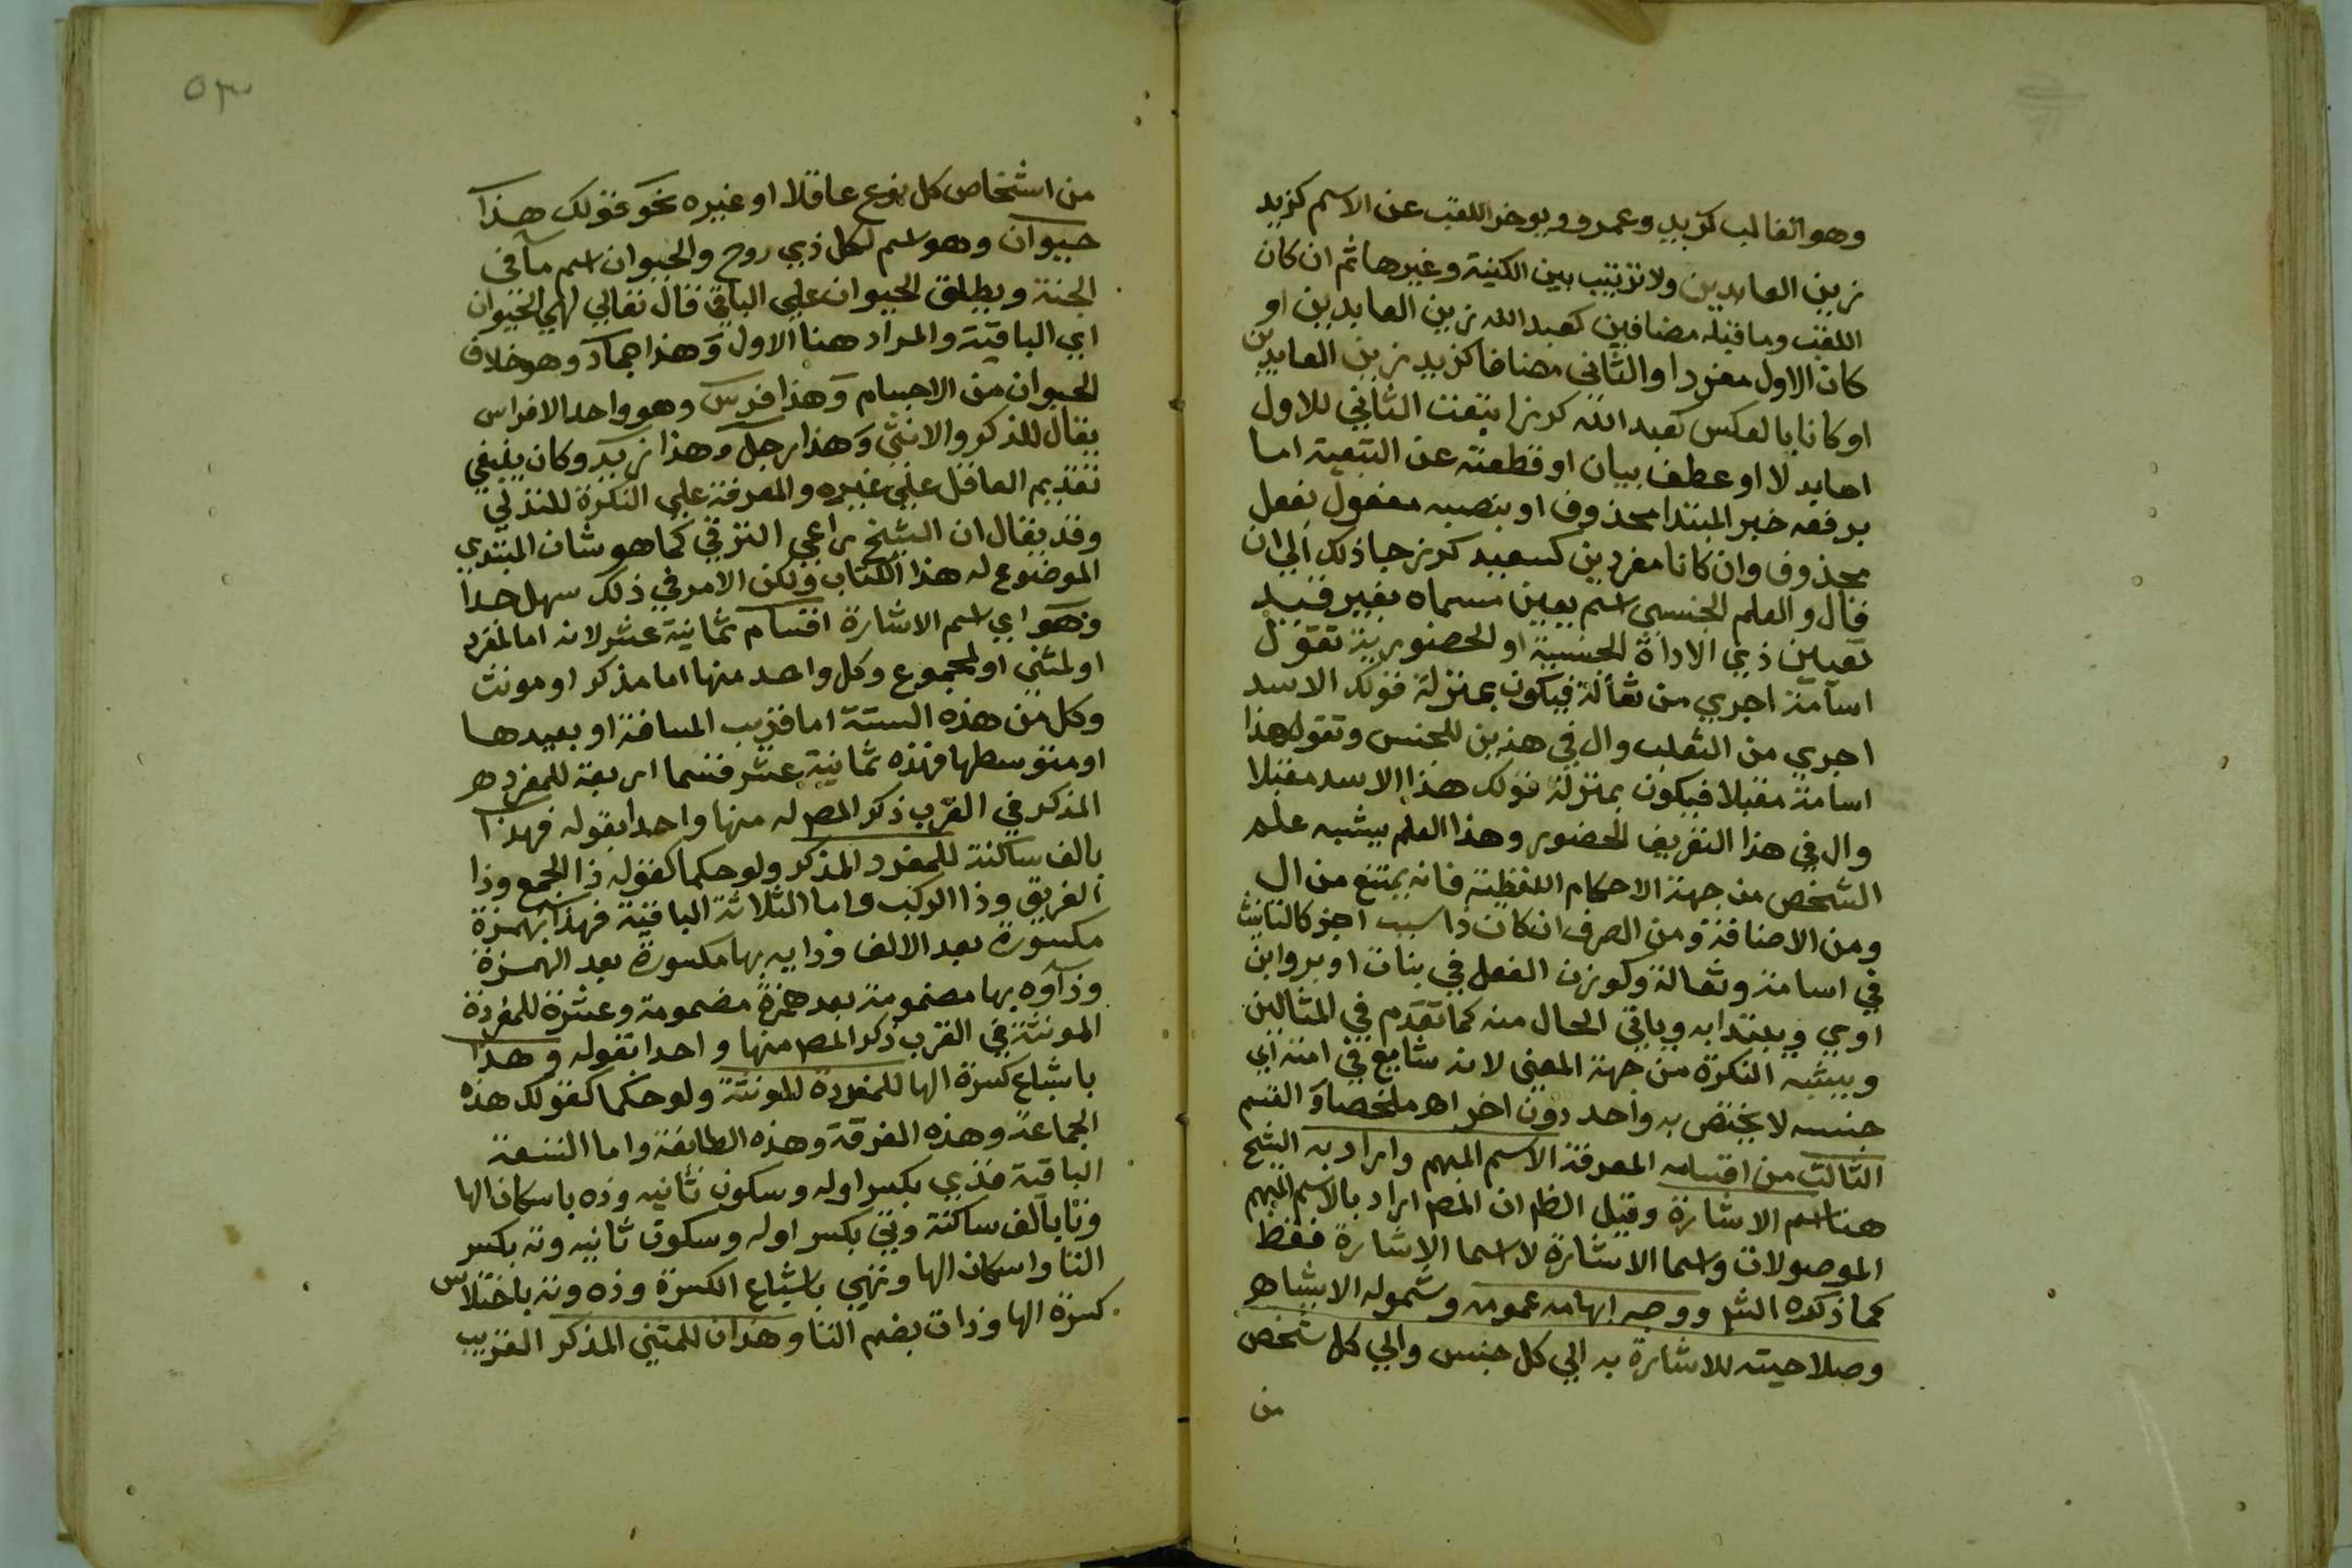 وهو الغالب كزيد وعمرو ويوخر اللقب عن الاسم كزيد
زين العابدين ولا ترتيب بين الكنية وغيرها ثم ان كان
اللقب وما قبله مضافين كعبد الله زين العابدين او
كان الاول مفردا والثاني مضافا كزيد زين العابدين
او كانا بالعكس كعبد الله كرز اتبعت الثاني للاول
اما بدلا او عطف بيان او قطعته عن التبعية اما
برفعه خبر المبتدا محذوف او بنصبه مفعول بفعل
محذوف وان كانا مفردين كسعيد كرز جا ذلك الي ان
قال والعلم الجنسي اسم يعين مسماه بغير قيد
تعيين ذي الاداة الجنسية او الحضورية تقول
اسامة اجري من ثعالة فيكون بمنزلة قولك الاسد
اجري من الثعلب وال في هذين للجنس وتقول هذا
اسامة مقبلا فيكون بمنزلة قولك هذا الاسد مقبلا
وال في هذا التعريف للحضور وهذا العلم يشبه علم
الشخص من جهة الاحكام اللفظية فانه يمتنع من ال
ومن الاضافة ومن الصرف ان كان ذا سبب اخر كالتانيث
في اسامة وثعالة وكوزن الفعل في بنات اوبر وابن
اوي ويبتدا به وياتي الحال منه كما تقدم في المثالين
ويشبه النكرة من جهة المعني لانه شايع في امته اي
جنسه لا يختص به واحد دون اخر اه ملخصا و القسم
الثالث من اقسام المعرفة الاسم المبهم واراد به الشيخ
هنا اسم الاشارة وقيل الظ ان المص اراد بالاسم المبهم
الموصولات واسما الاشارة لا اسما الاشارة فقط
كما ذكره الش ووجه ابهامه عمومه وشموله الاشيا ه
وصلاحيته للاشارة به الي كل جنس والي كل شخص
من
٥٣
من اشخاص كل نوع عاقلا او غيره نحو قولك هذا
حيوان وهو اسم لكل ذي روح والحيوان اسم ما في
الجنة ويطلق الحيوان علي الباقي قال تعالي لهي الحيوان
اي الباقية والمراد هنا الاول وهذا جماد وهو خلاف
الحيوان من الاجسام وهذا فرس وهو واحد الافراس
يقال للذكر والانثي وهذا رجل وهذا زيد وكان ينبغي
تقديم العاقل علي غيره والمعرفة علي النكرة للتدلي
وقد يقال ان الشيخ راعي الترقي كما هو شان المبتدي
الموضوع له هذا الكتاب ولكن الامر في ذلك سهل جدا
وهو اي اسم الاشارة اقسام ثمانية عشر لانه اما لمفرد
او لمثني او لمجموع وكل واحد منها اما مذكر او مونث
وكل من هذه الستة اما قريب المسافة او بعيدها
او متوسطها فهذه ثمانية عشر قسما اربعة للمفرد ه
المذكر في القرب ذكر المص له منها واحدا بقوله فهذا
بالف ساكنة للمفرد المذكر ولو حكما كقوله ذا الجمع وذا
الفريق وذا الركب واما الثلاثة الباقية فهذاء بهمزة
مكسورة بعد الالف وذايه بها مكسورة بعد الهمزة
وذاوه بها مضمومة بعد همزة مضمومة وعشرة للمفردة
المونثة في القرب ذكر المص منها واحدا بقوله و هذه
باشباع كسرة الها للمفردة المونثة ولو حكما كقولك هذه
الجماعة وهذه الفرقة وهذه الطايفة واما التسعة
الباقية فذي بكسر اوله وسكون ثانيه وذه باسكان الها
وتا بالف ساكنة وتي بكسر اوله وسكون ثانيه وته بكسر
التا واسكان الها وتهي باشباع الكسرة وذه وته باختلاس
كسرة الها وذات بضم التا وهذان للمثني المذكر القريب